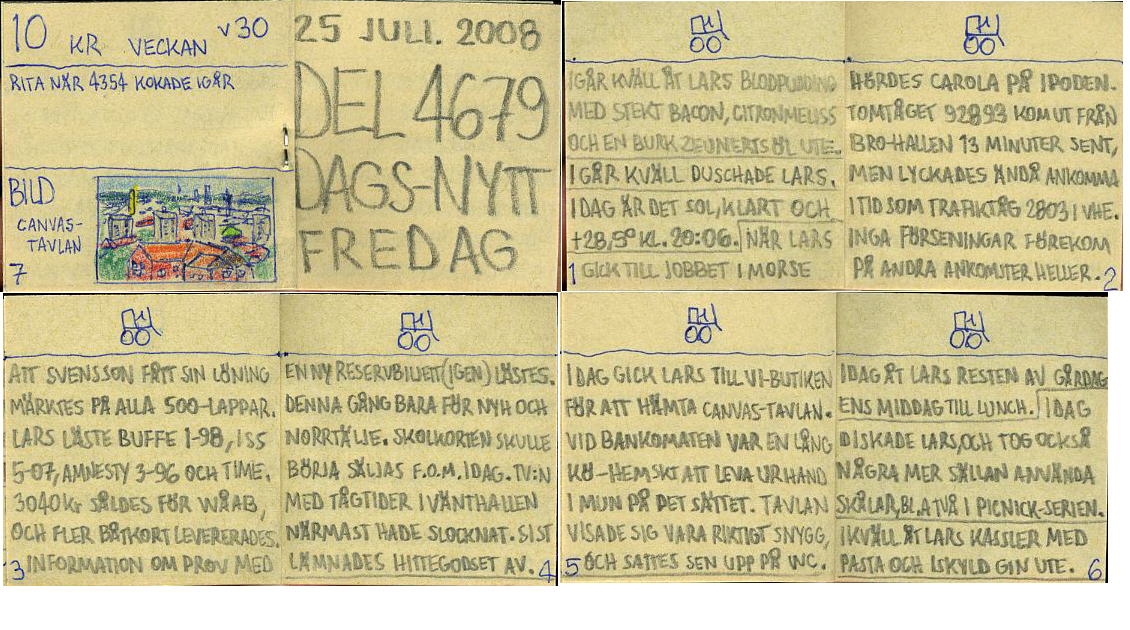 10 KR VECKAN V30
RITA NÄR 4354 KOKADE IGÅR
BILD
CANVAS-
TAVLAN
7
25 JULI. 2008
DEL 4679
DAGS-NYTT
FREDAG
IGÅR KVÄLL ÅT LARS BLODPUDDING
MED STEKT BACON, CITRONMELISS
OCH EN BURK ZEUNERTS ÖL UTE.
IGÅR KVÄLL DUSCHADE LARS.
IDAG ÄR DET SOL, KLART OCH
+28,5° KL. 20:06. NÄR LARS
1 GICK TILL JOBBET I MORSE
HÖRDES CAROLA PÅ IPODEN.
TOMTÅGET 92893 KOM UT FRÅN
BRO-HALLEN 13 MINUTER SENT,
MEN LYCKADES ÄNDÅ ANKOMMA
I TID SOM TRAFIKTÅG 2803 I VHE.
INGA FÖRSENINGAR FÖREKOM
PÅ ANDRA ANKOMSTER HELLER. 2
ATT SVENSSON FÅTT SIN LÖNING
MÄRKTES PÅ ALLA 500-LAPPAR.
LARS LÄSTE BUFFE 1-98, ISS
5-07, AMNESTY 3-96 OCH TIME.
3040 kr SÅLDES FÖR WÅAB,
OCH FLER BÅTKORT LEVERERADES.
3 INFORMATION OM PROV MED
EN NY RESERVBILJETT (IGEN) LÄSTES.
DENNA GÅNG BARA FÖR NYH OCH
NORRTÄLJE. SKOLKORTEN SKULLE
BÖRJA SÄLJAS F.O.M. IDAG. TV:N
MED TÅGTIDER I VÄNTHALLEN
NÄRMAST HADE SLOCKNAT. SIST
LÄMNADES HITTEGODSET AV. 4
IDAG GICK LARS TILL VI-BUTIKEN
FÖR ATT HÄMTA CANVAS-TAVLAN.
VID BANKOMATEN VAR EN LÅNG
KÖ-HEMSKT ATT LEVA UR HAND
I MUN PÅ DET SÄTTET. TAVLAN
VISADE SIG VARA RIKTIGT SNYGG,
5 OCH SATTES SEN UPP PÅ WC.
IDAG ÅT LARS RESTEN AV GÅRDAG
ENS MIDDAG TILL LUNCH. IDAG
DISKADE LARS, OCH TOG OCKSÅ
NÅGRA MER SÄLLAN ANVÄNDA
SKÅLAR, BL.A TVÅ I PICNICK-SERIEN.
IKVÄLL ÅT LARS KASSLER MED
PASTA OCH ISKYLD GIN UTE. 6